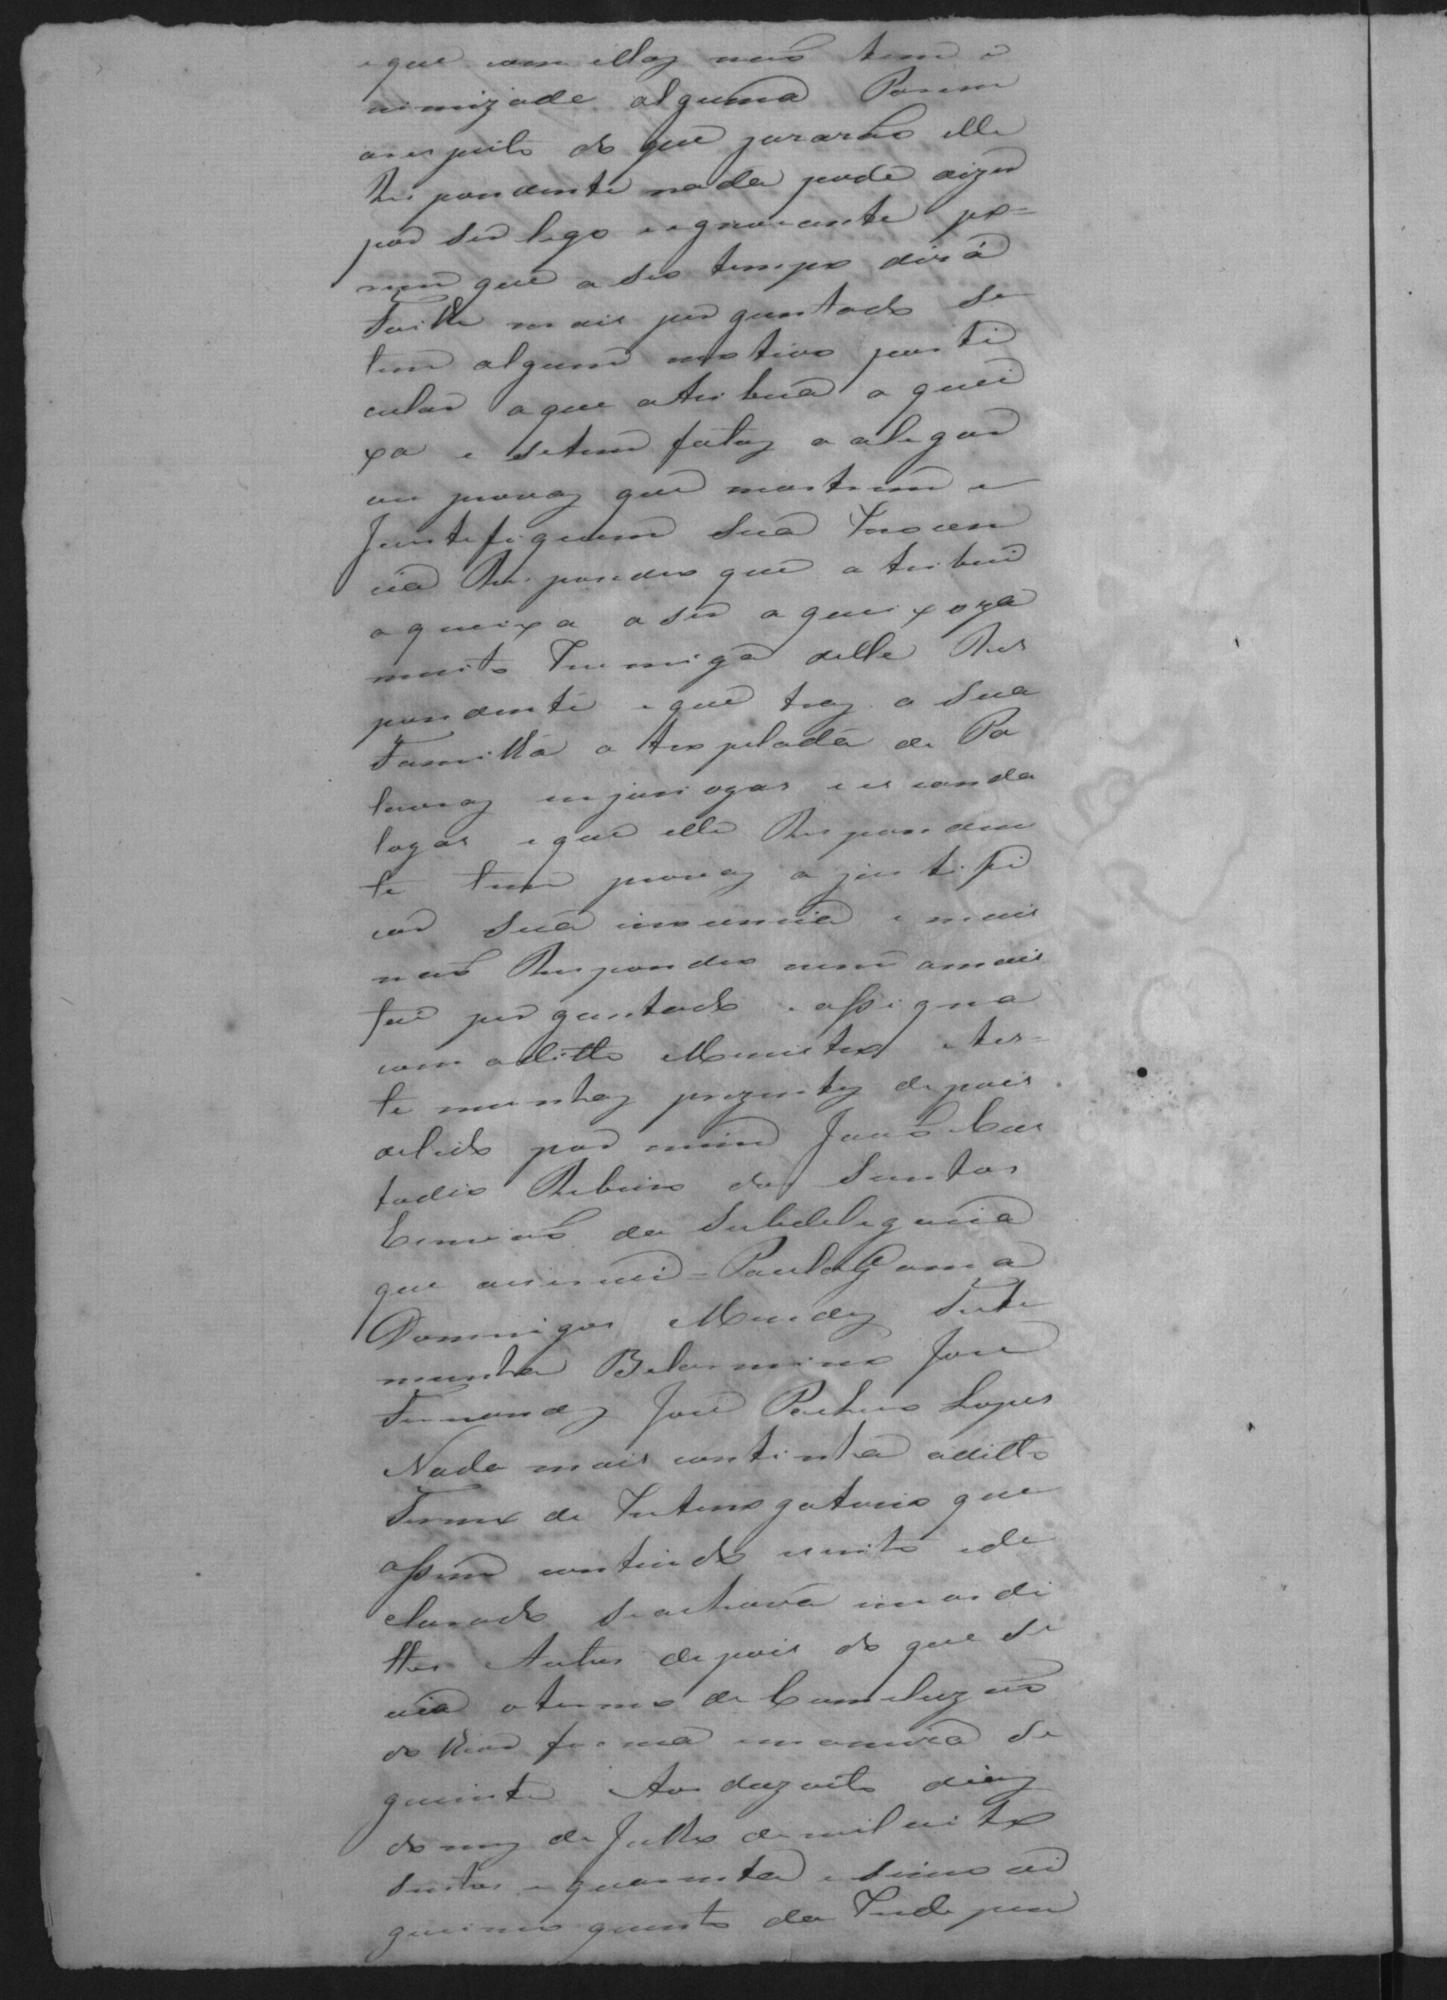 e que com ellas naõ tem i
nimizade alguma Porem
arespeito do que juraraõ elle
Respondente nada pode dizer
por ser lego e ignorante po=
rem que a seo tempo dirá
Foi lhe mais perguntado se
tem algum motivo parti
cular aque atribua a quei
xa e setem fatos a alegar
ou provas que mostrem e
Justefiquem sua Inocen
cia Respondeo que atribui
aqueixa aser aqueixoza
muito Inemiga delle Res
pondente e que tras a sua
Familha atropelada de Pa
lavras injuriozas e escanda
lozas e que elle Responden
te tem provas a justifi
car sua inocencia e mais
naõ Respondeo nem amais
foi perguntado e assigna
com aditto Menistro e tes=
temunhas prezentes depois
delido por mim Joaõ Cus
todio Ribeiro dos Santos
Escrivaõ da Subdelegacia
que escrevi = Paula Gama
Domingos Mendes Teste
munha Belarmino Jose
Fernandes Jose Pacheco Lopes
Nada mais continha aditto
Termo de Interogatorio que
assim contiudo escrito ede
clarado seachava em os di
ttos Autos depois do que se
via otermo de Comcluzaõ
do theor forma emaneira se
guinte Aos dezoito dias
do mes de Julho de mil oito
sentos e quarenta e sinco vi
gecimo quarto da Indepen